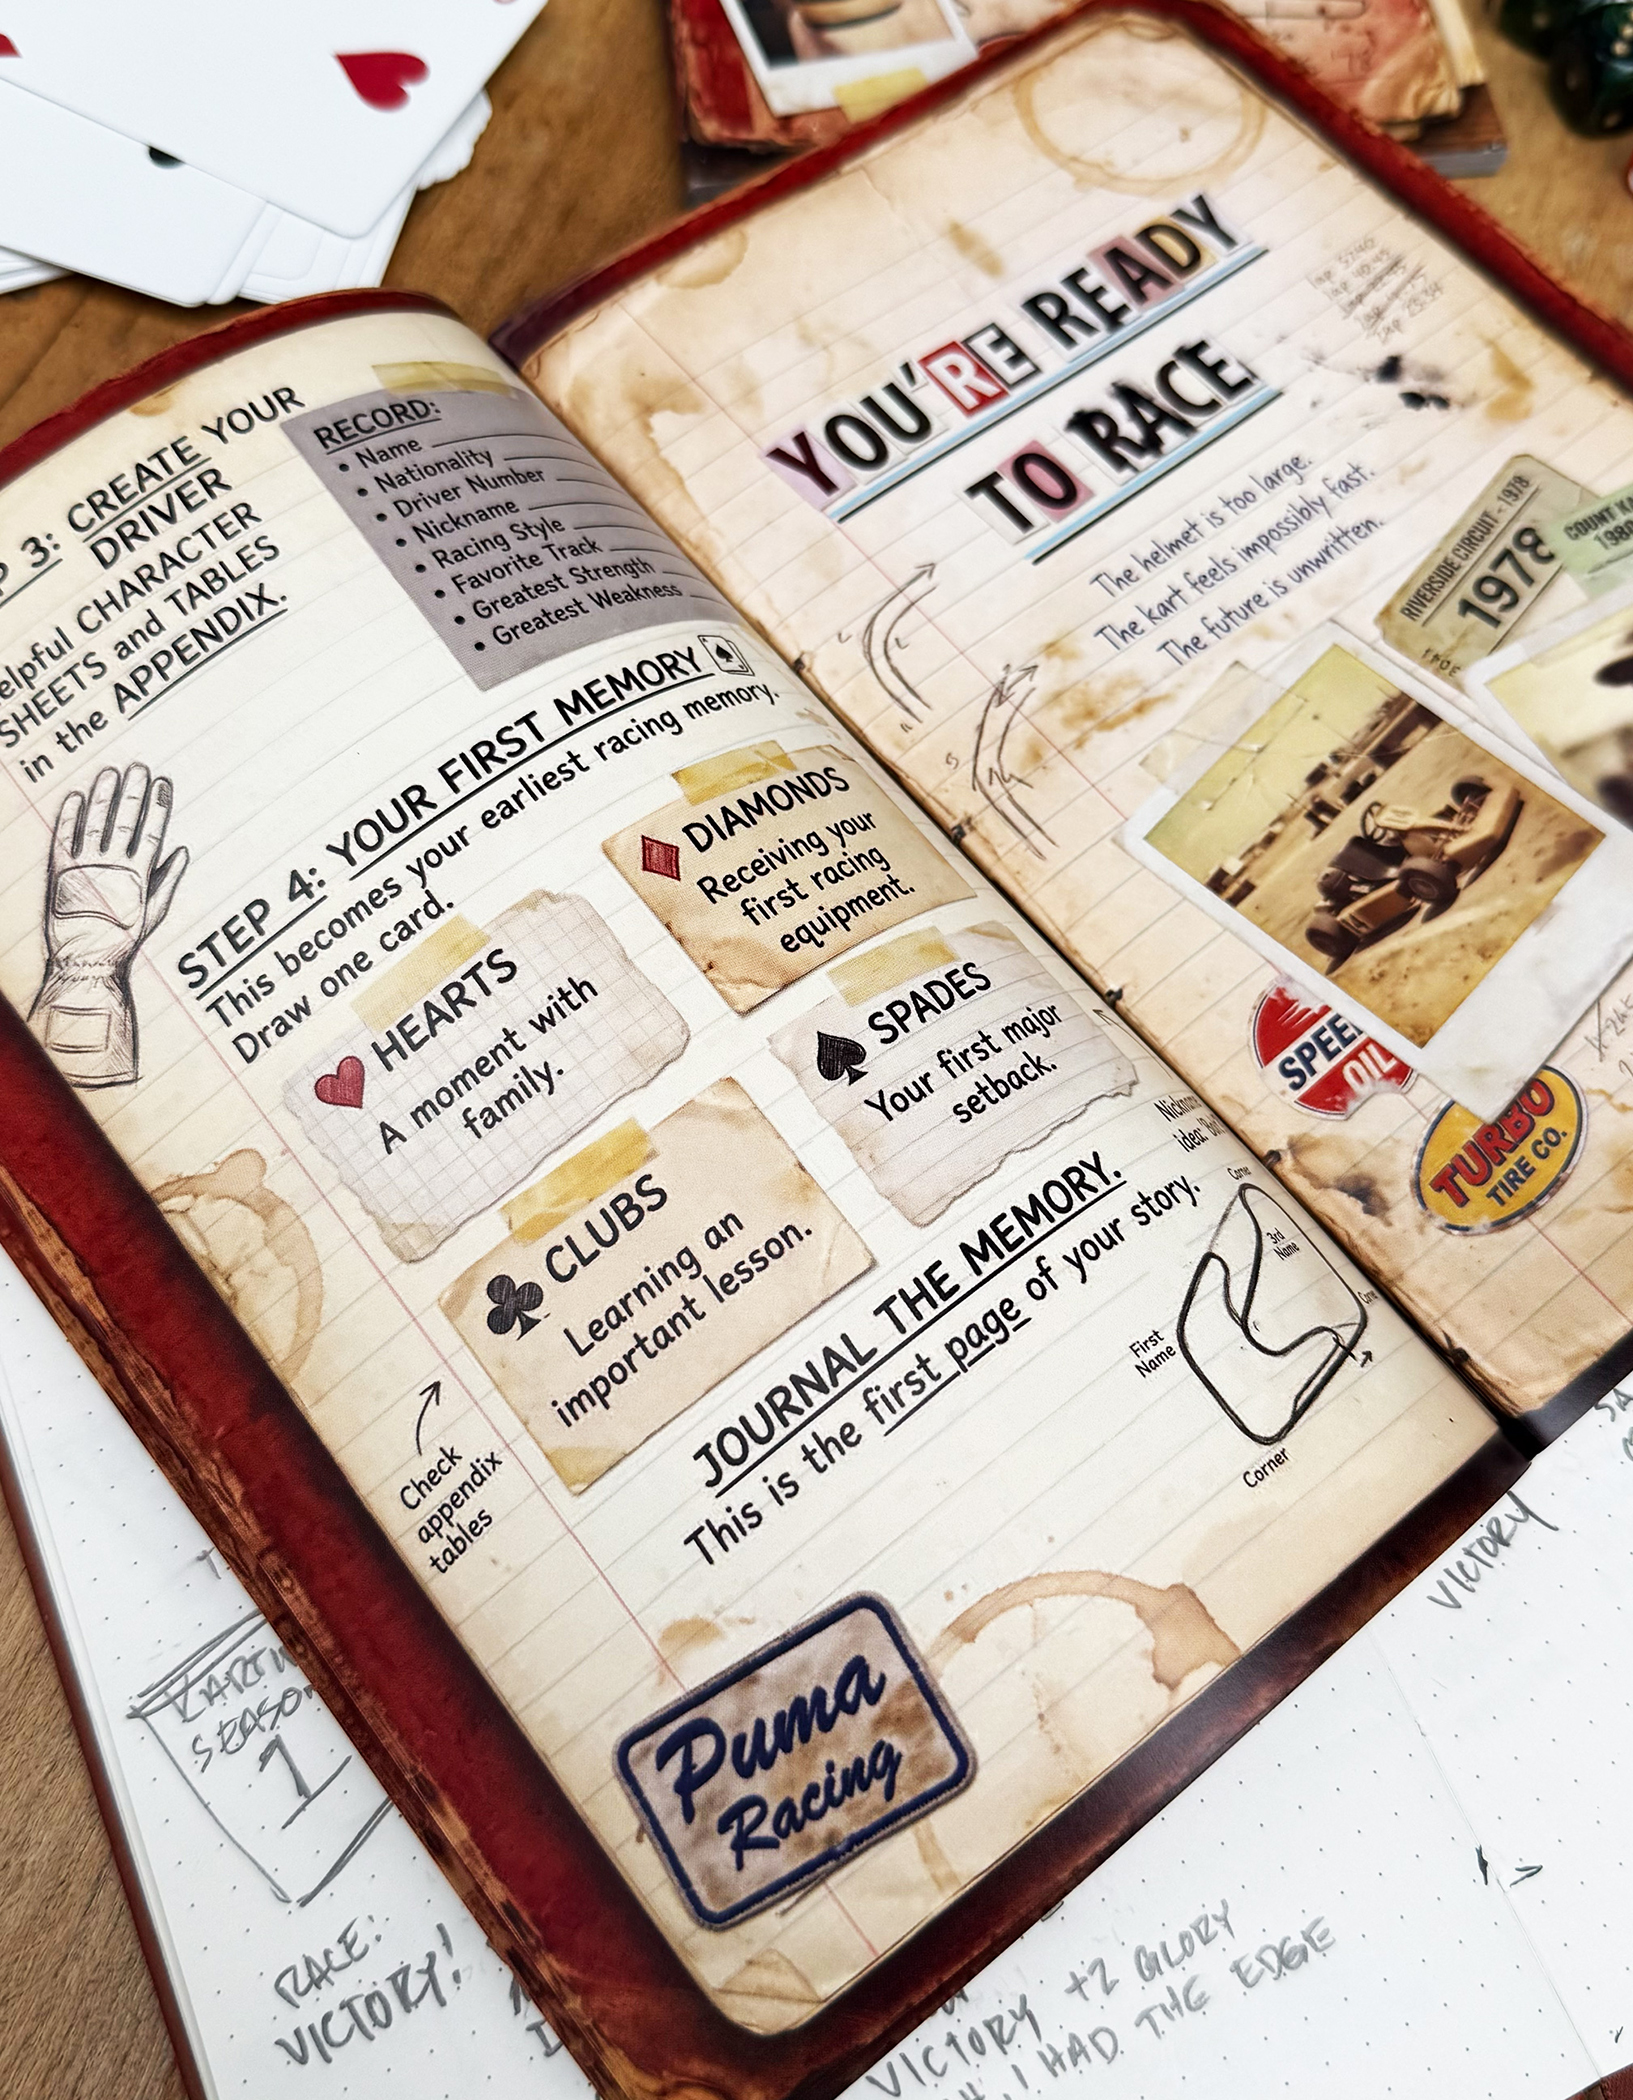 P 3: CREATE YOUR
DRIVER
elpful CHARACTER
SHEETS and TABLES
in the APPENDIX.
RECORD:
• Name
• Nationality
• Driver Number
• Nickname
• Racing Style
• Favorite Track
• Greatest Strength
• Greatest Weakness
STEP 4: YOUR FIRST MEMORY
This becomes your earliest racing memory.
Draw one card.
HEARTS
A moment with
family.
DIAMONDS
Receiving your
first racing
equipment.
CLUBS
Learning an
important lesson.
SPADES
Your first major
setback.
Check
appendix
tables
JOURNAL THE MEMORY.
This is the first page of your story.
idea:
Corner
3rd
Name
First
Name
Corner
Puma
Racing
YOU'RE READY
TO RACE
The helmet is too large.
The kart feels impossibly fast.
The future is unwritten.
RIVERSIDE CIRCUIT - 1978
1978
COUNT
SPEE
OIL
TURBO
TIRE CO.
SEASON
1
RACE:
VICTORY!
VICTORY
VICTORY +2 GLORY
I HAD THE EDGE